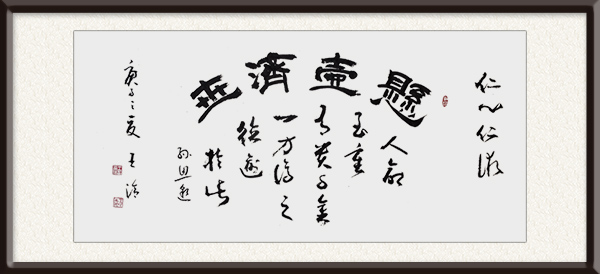 仁心仁術
懸壺濟世
人命
至重
有貴千金
一方濟之
德逾
於此
孫思邈
庚子之夏